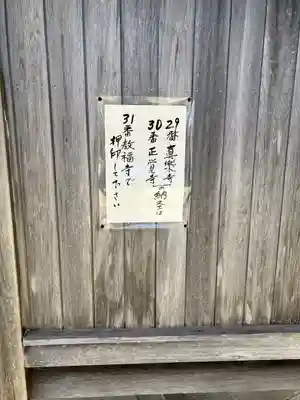 29番 真楽寺
30番 正覚寺
の納経は
31番教福寺で
押印して下さい